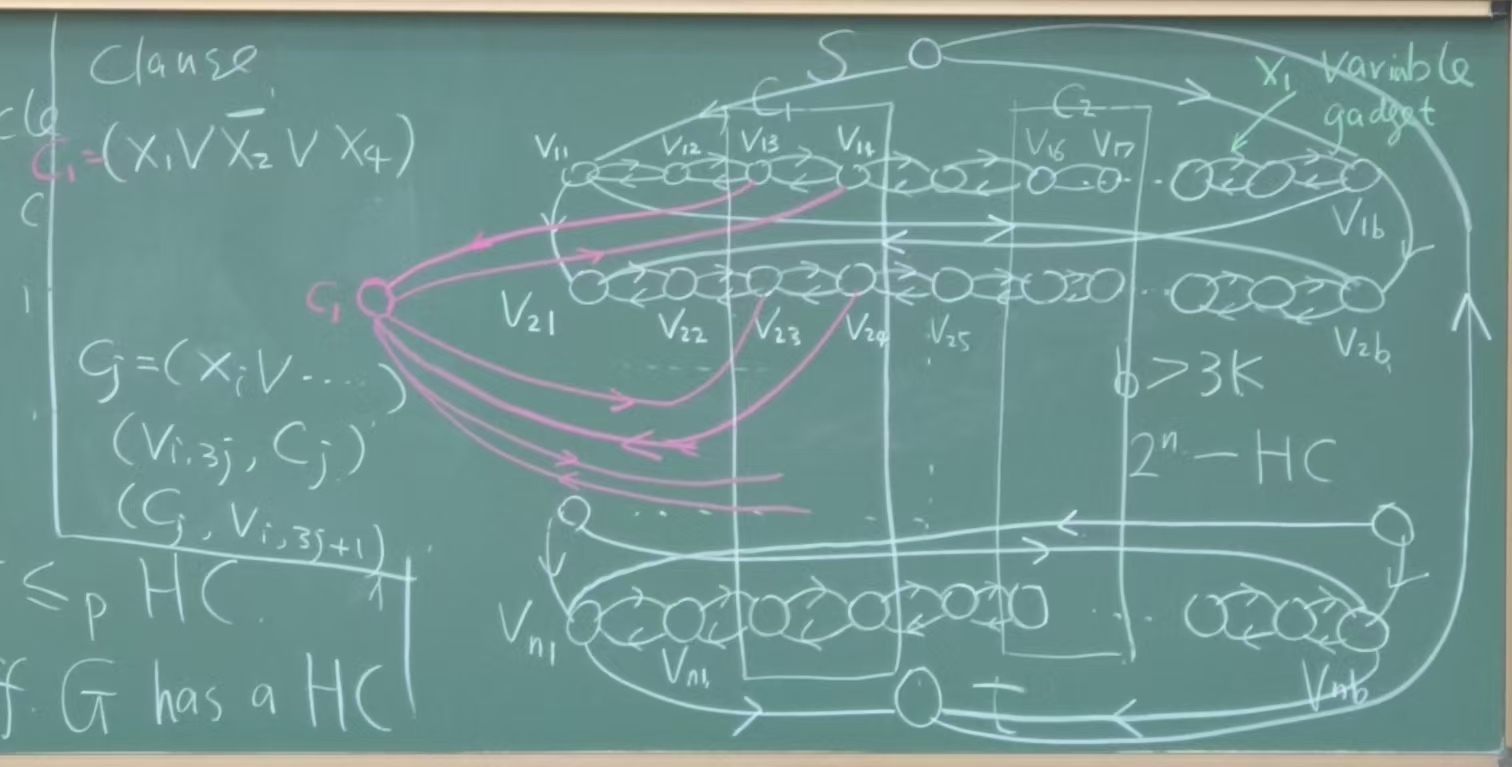 Clause
C₁=(X₁ V X̄₂ V X₄)
Cj=(Xi V ....)
(Vi,3j, Cj)
(Cj, Vi,3j+1)
≤p HC
G has a HC
S
X₁ variable
gadget
C₁
C₂
V₁₁
V₁₂
V₁₃
V₁₄
V₁₆
V₁₇
V₁b
C₁
V₂₁
V₂₂
V₂₃
V₂₄
V₂₅
V₂b
b>3K
2ⁿ - HC
Vn₁
Vn₁
Vnb
t